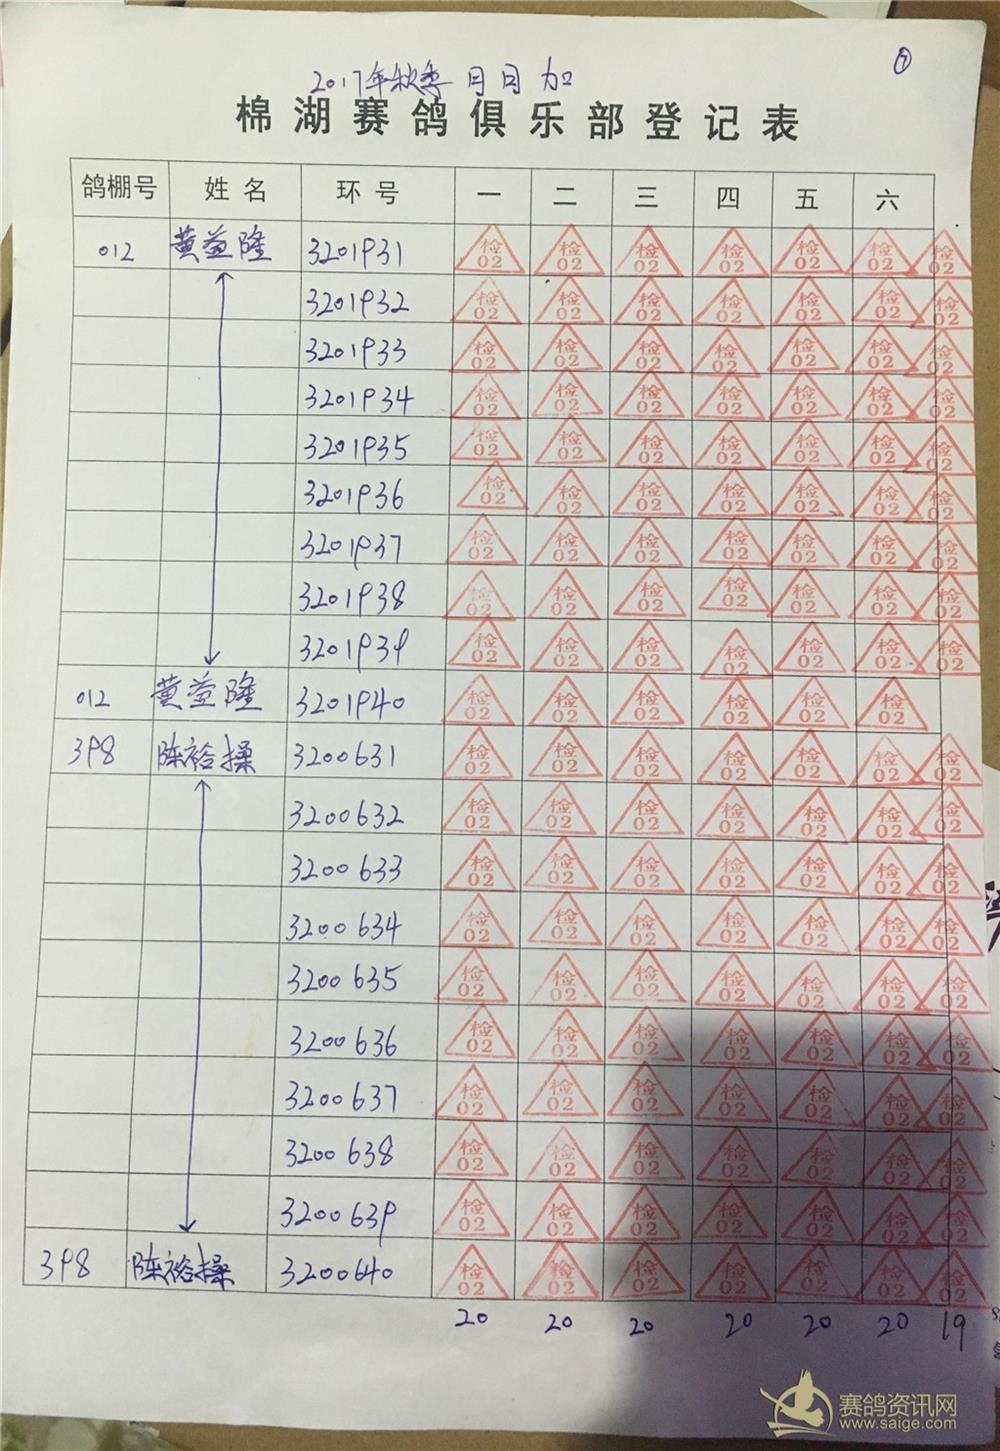 ⑦
2017年秋季 月 日 加
棉湖赛鸽俱乐部登记表
鸽棚号 姓名 环号 一 二 三 四 五 六
012 黄益隆 3201931 检02 检02 检02 检02 检02 检02 检02
3201932 检02 检02 检02 检02 检02 检02 检02
3201933 检02 检02 检02 检02 检02 检02 检02
3201934 检02 检02 检02 检02 检02 检02 检02
3201935 检02 检02 检02 检02 检02 检02 检02
3201936 检02 检02 检02 检02 检02 检02 检02
3201937 检02 检02 检02 检02 检02 检02 检02
3201938 检02 检02 检02 检02 检02 检02 检02
3201939 检02 检02 检02 检02 检02 检02 检02
012 黄益隆 3201940 检02 检02 检02 检02 检02 检02
398 陈裕操 3200631 检02 检02 检02 检02 检02 检02 检02
3200632 检02 检02 检02 检02 检02 检02 检02
3200633 检02 检02 检02 检02 检02 检02 检02
3200634 检02 检02 检02 检02 检02 检02 检02
3200635 检02 检02 检02 检02 检02 检02 检02
3200636 检02 检02 检02 检02 检02 检02 检02
3200637 检02 检02 检02 检02 检02 检02 检02
3200638 检02 检02 检02 检02 检02 检02 检02
3200639 检02 检02 检02 检02 检02 检02 检02
398 陈裕操 3200640 检02 检02 检02 检02 检02 检02 检02
20 20 20 20 20 20 19
赛鸽资讯网
www.saige.com